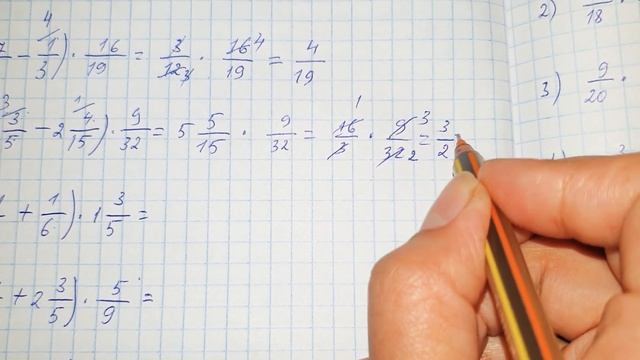 4
− 1/3) · 16/19 = 3/12 4 · 16 4/19 = 4/19
3 3/5 − 2 1 4/15) · 9/32 = 5 5/15 · 9/32 = 16 1/3 · 9 3/32 2 = 3/2
+ 1/6) · 1 3/5 =
+ 2 3/5) · 5/9 =
2) 18
3) 9/20 ·